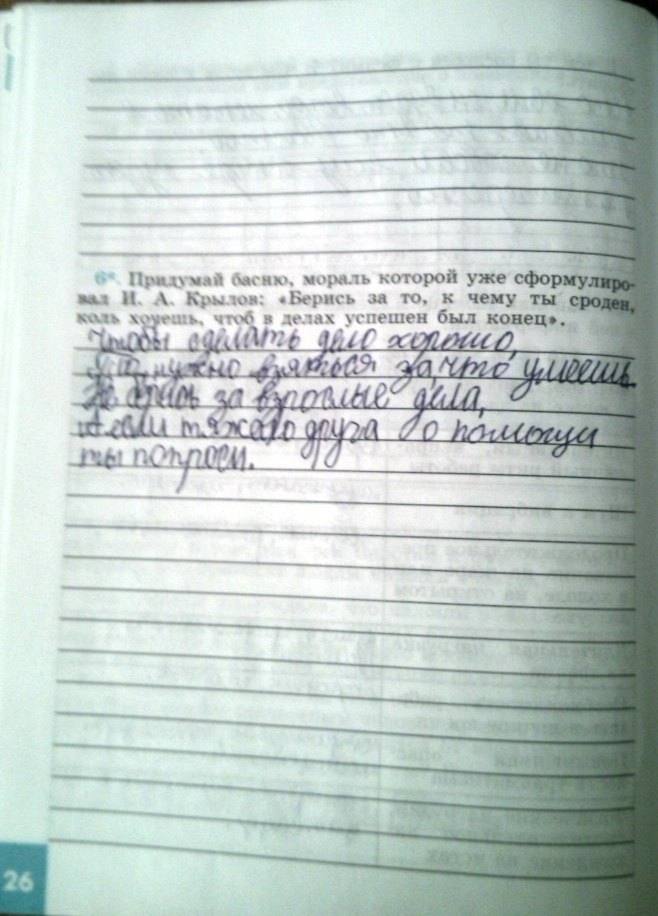 6*. Придумай басню, мораль которой уже сформулиро-
вал И. А. Крылов: «Берись за то, к чему ты сроден,
коль хочешь, чтоб в делах успешен был конец».
Чтобы сделать дело хорошо,
нужно взяться за что умеешь.
Не берись за взрослые дела,
А если тяжело друга о помощи
ты попроси.
26